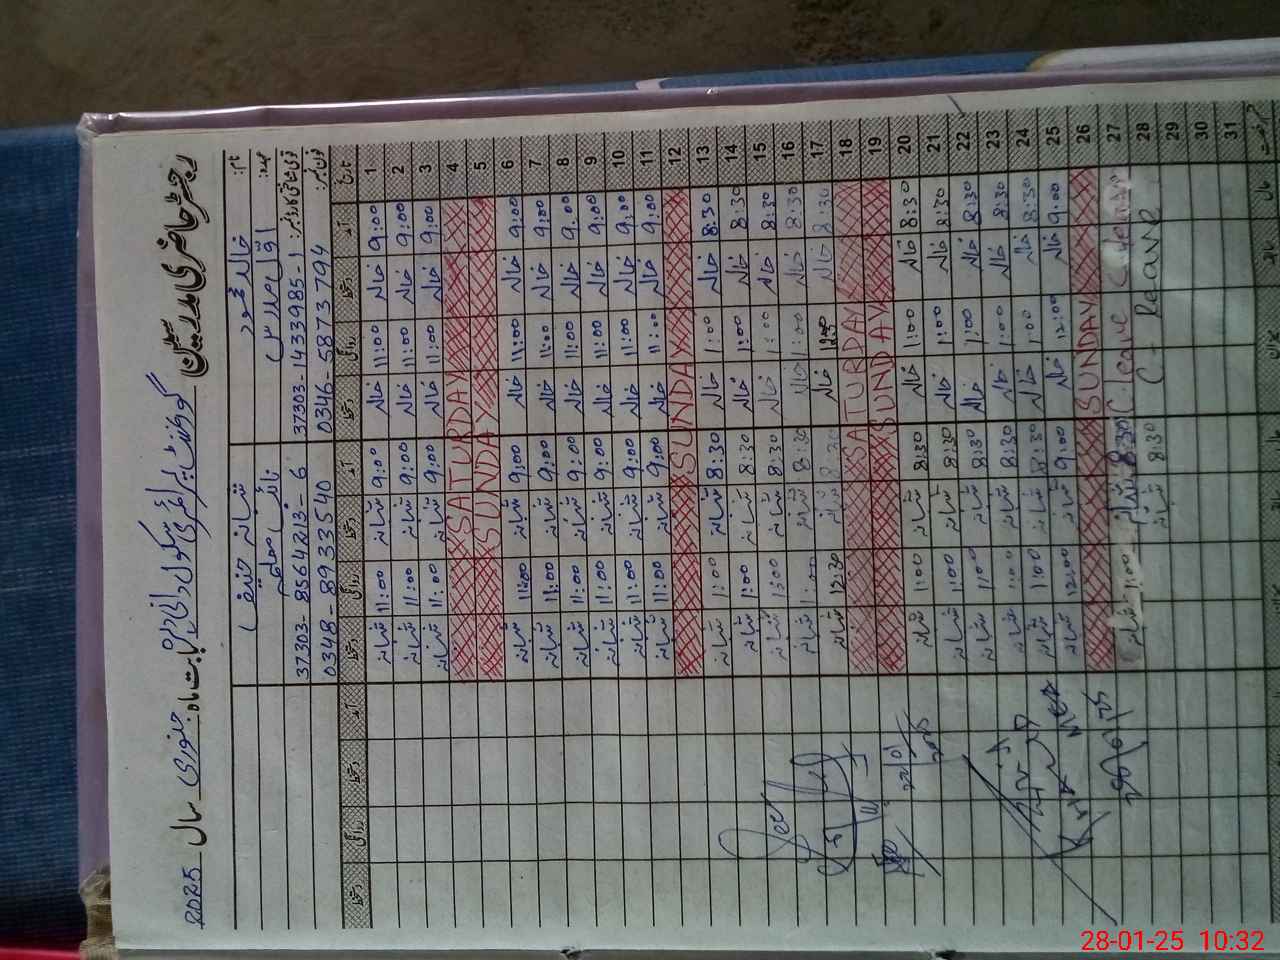 رجسٹر حاضری مدرسین گورنمنٹ پرائمری سکول بابت ماہ جنوری سال 2025
نام: خالد محمود شبانہ
عہدہ: اول مدرس نائب معلم
قومی شناختی کارڈ نمبر: 37303-1433985-1 37303-8564213-6
فون نمبر: 0346-5873794 0348-8933540
تاریخ آمد دستخط روانگی دستخط آمد دستخط روانگی دستخط آمد دستخط روانگی دستخط
1 9:00 خالد 11:00 خالد 9:00 شبانہ 11:00 شبانہ
2 9:00 خالد 11:00 خالد 9:00 شبانہ 11:00 شبانہ
3 9:00 خالد 11:00 خالد 9:00 شبانہ 11:00 شبانہ
4 SATURDAY
5 SUNDAY
6 9:00 خالد 11:00 خالد 9:00 شبانہ 11:00 شبانہ
7 9:00 خالد 11:00 خالد 9:00 شبانہ 11:00 شبانہ
8 9:00 خالد 11:00 خالد 9:00 شبانہ 11:00 شبانہ
9 9:00 خالد 11:00 خالد 9:00 شبانہ 11:00 شبانہ
10 9:00 خالد 11:00 خالد 9:00 شبانہ 11:00 شبانہ
11 9:00 خالد 11:00 خالد 9:00 شبانہ 11:00 شبانہ
12 SUNDAY
13 8:30 خالد 1:00 خالد 8:30 شبانہ 1:00 شبانہ
14 8:30 خالد 1:00 خالد 8:30 شبانہ 1:00 شبانہ
15 8:30 خالد 1:00 خالد 8:30 شبانہ 1:00 شبانہ
16 8:30 خالد 1:00 خالد 8:30 شبانہ 1:00 شبانہ
17 8:30 خالد خالد 8:30 شبانہ 12:30 شبانہ
18 SATURDAY
19 SUNDAY
20 8:30 خالد 1:00 خالد 8:30 شبانہ 1:00 شبانہ
21 8:30 خالد 1:00 خالد 8:30 شبانہ 1:00 شبانہ
22 8:30 خالد 1:00 خالد 8:30 شبانہ 1:00 شبانہ
23 8:30 خالد 1:00 خالد 8:30 شبانہ 1:00 شبانہ
24 8:30 خالد 1:00 خالد 8:30 شبانہ 1:00 شبانہ
25 9:00 خالد 12:00 خالد 9:00 شبانہ 12:00 شبانہ
26 SUNDAY
27 C. leave 8:30 شبانہ 1:00 شبانہ
28 C- leave 8:30 شبانہ
29
30
31
28-01-25 10:32